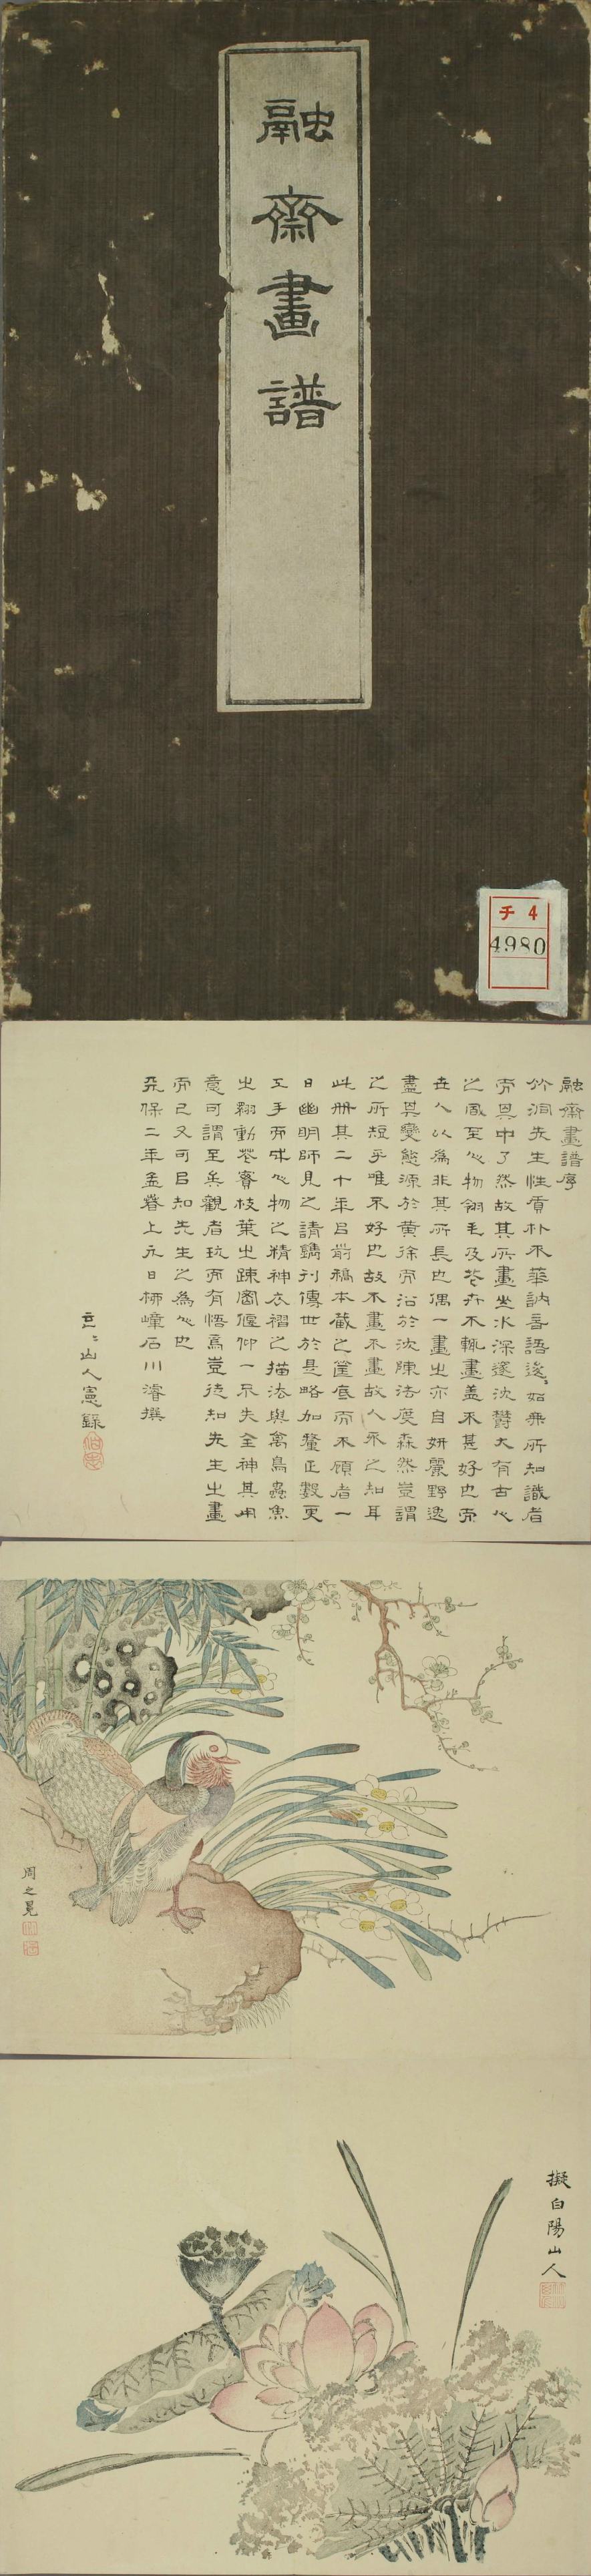 融齋畫譜
チ 4
4980
融齋畫譜序
竹洞先生性質朴不華訥言語邈〻如無所知識者
而其中了然故其所畫山水深邃沈鬱大有古人
之風至人物翎毛及花卉不輒畫蓋不甚好也而
世人以為非其所長也偶一畫出亦自妍麗野逸
盡其變態源於黃徐而沿於沈陳法度森然豈謂
之所短乎唯不好也故不畫不畫故人不之知耳
此冊其二十年㠯前稿本藏之筐底而不顧者一
日幽明師見之請鐫刊傳世於是略加釐正數更
工手而成人物之精神衣褶之描法與禽鳥蟲魚
出翱動花實枝葉出疎密偃仰一不失全神其用
意可謂至矣觀者玩而有悟焉豈徒知先生出畫
而已又可㠯知先生之為人也
天保二年孟春上元日梧嶂石川濬撰
山人憲錄
周之冕
擬白陽山人